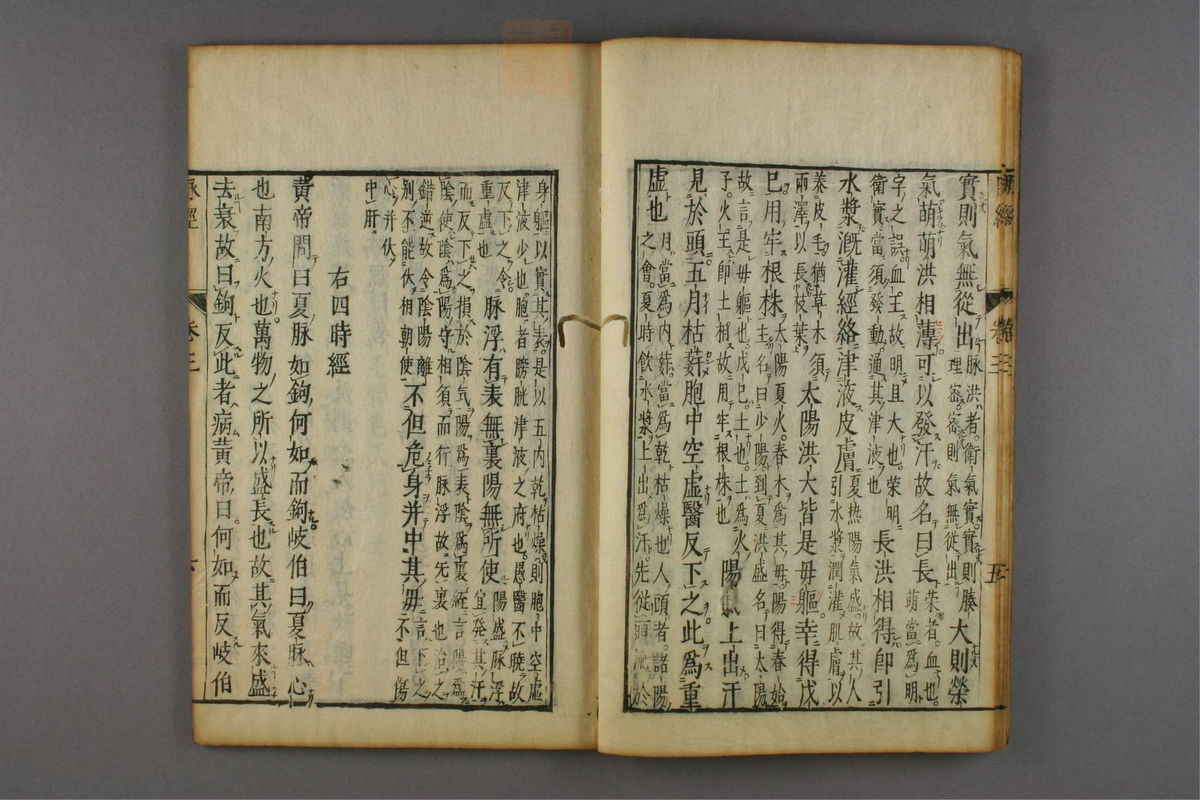 脉經
卷三
五
實則氣無從出脉洪者衛氣實實則腠理密密則氣無從出大則榮
氣萌萌洪相薄可以發汗故名曰長榮者血也萌當為明
字之誤血王故明且大也榮明衛實當須發動通其津液也長洪相得即引
水漿漑灌經絡津液皮膚夏热陽氣盛故其人引水漿潤灌肌膚以
養皮毛猶草木須雨澤以長枝葉太陽洪大皆是毋軀幸得戊
巳用牢根株太陽夏火春木為其毋陽得春始生名曰少陽到夏洪盛名曰太陽
故言是毋軀也戊巳土也土為火子火王即土相故用牢根株也陽氣上出汗
見於頭五月枯薪胞中空虛醫反下之此為重
虛也月當為内薪當為乾枯燥也人頭者諸陽之會夏時飲水漿上出為汗先從頭流於
身軀以實其表是以五内乾枯燥則胞中空虛津液少也胞者膀胱津液之府也愚醫不曉故
反下之令重虛也脉浮有表無裏陽無所使陽盛脉浮宜発其汗
而反下之損於陰气陽為表陰為裏經言陽為陰使陰為陽守相須而行脉浮故无裏也治之
錯逆故令陰陽離別不能伏相朝使不但危身并中其毋言下之不但傷
心并伏中肝
右四時經
黄帝問曰夏脉如鉤何如而鉤岐伯曰夏脉心
也南方火也萬物之所以盛長也故其氣來盛
去衰故曰鉤反此者病黄帝曰何如而反岐伯
脉經
卷三